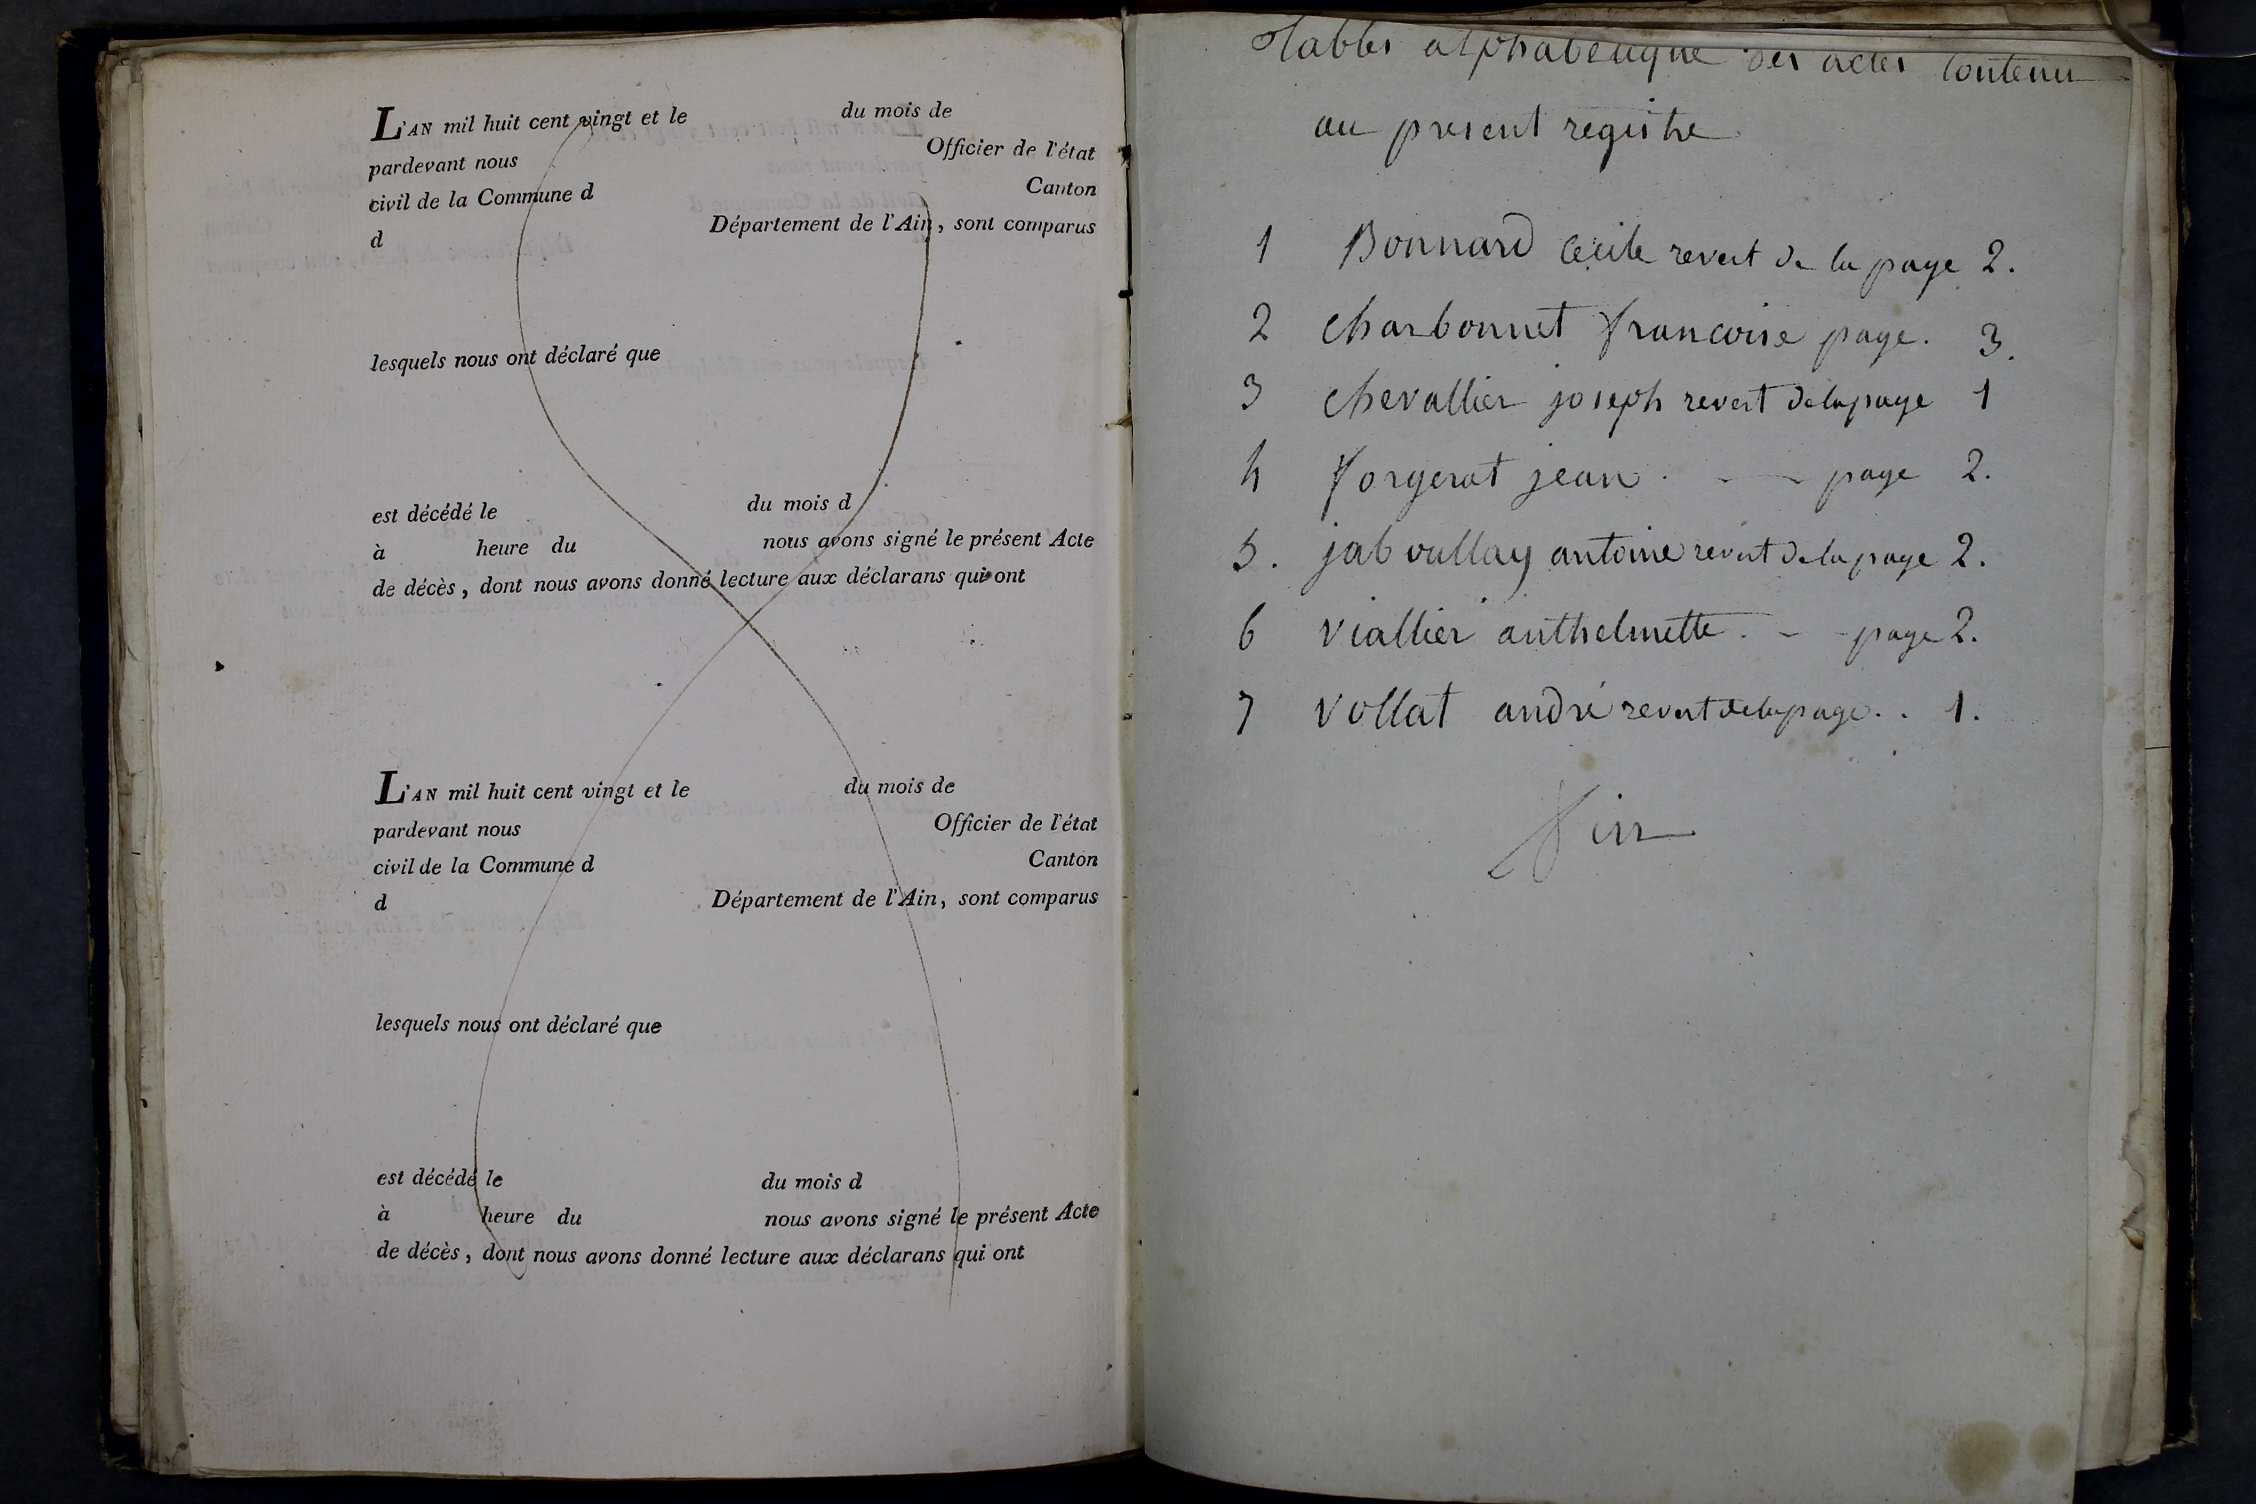 L'AN mil huit cent vingt et le du mois de
pardevant nous Officier de l'état
civil de la Commune d Canton
d Département de l'Ain, sont comparus
lesquels nous ont déclaré que
est décédé le du mois d
à heure du nous avons signé le présent Acte
de décès, dont nous avons donné lecture aux déclarans qui ont
L'AN mil huit cent vingt et le du mois de
pardevant nous Officier de l'état
civil de la Commune d Canton
d Département de l'Ain, sont comparus
lesquels nous ont déclaré que
est décédé le du mois d
à heure du nous avons signé le présent Acte
de décès, dont nous avons donné lecture aux déclarans qui ont
Tables alphabetique des actes Contenu
au present registre
1 Bonnard Cécile revert de la page 2.
2 Charbonnet francoise page. 3.
3 Chevallier joseph revert de la page 1
4 forgerat jean. - - page 2.
5. jaboullay antoine revert de la page 2.
6 viallier anthelmette. - - page 2.
7 vollat andré revert de la page. . 1.
fin